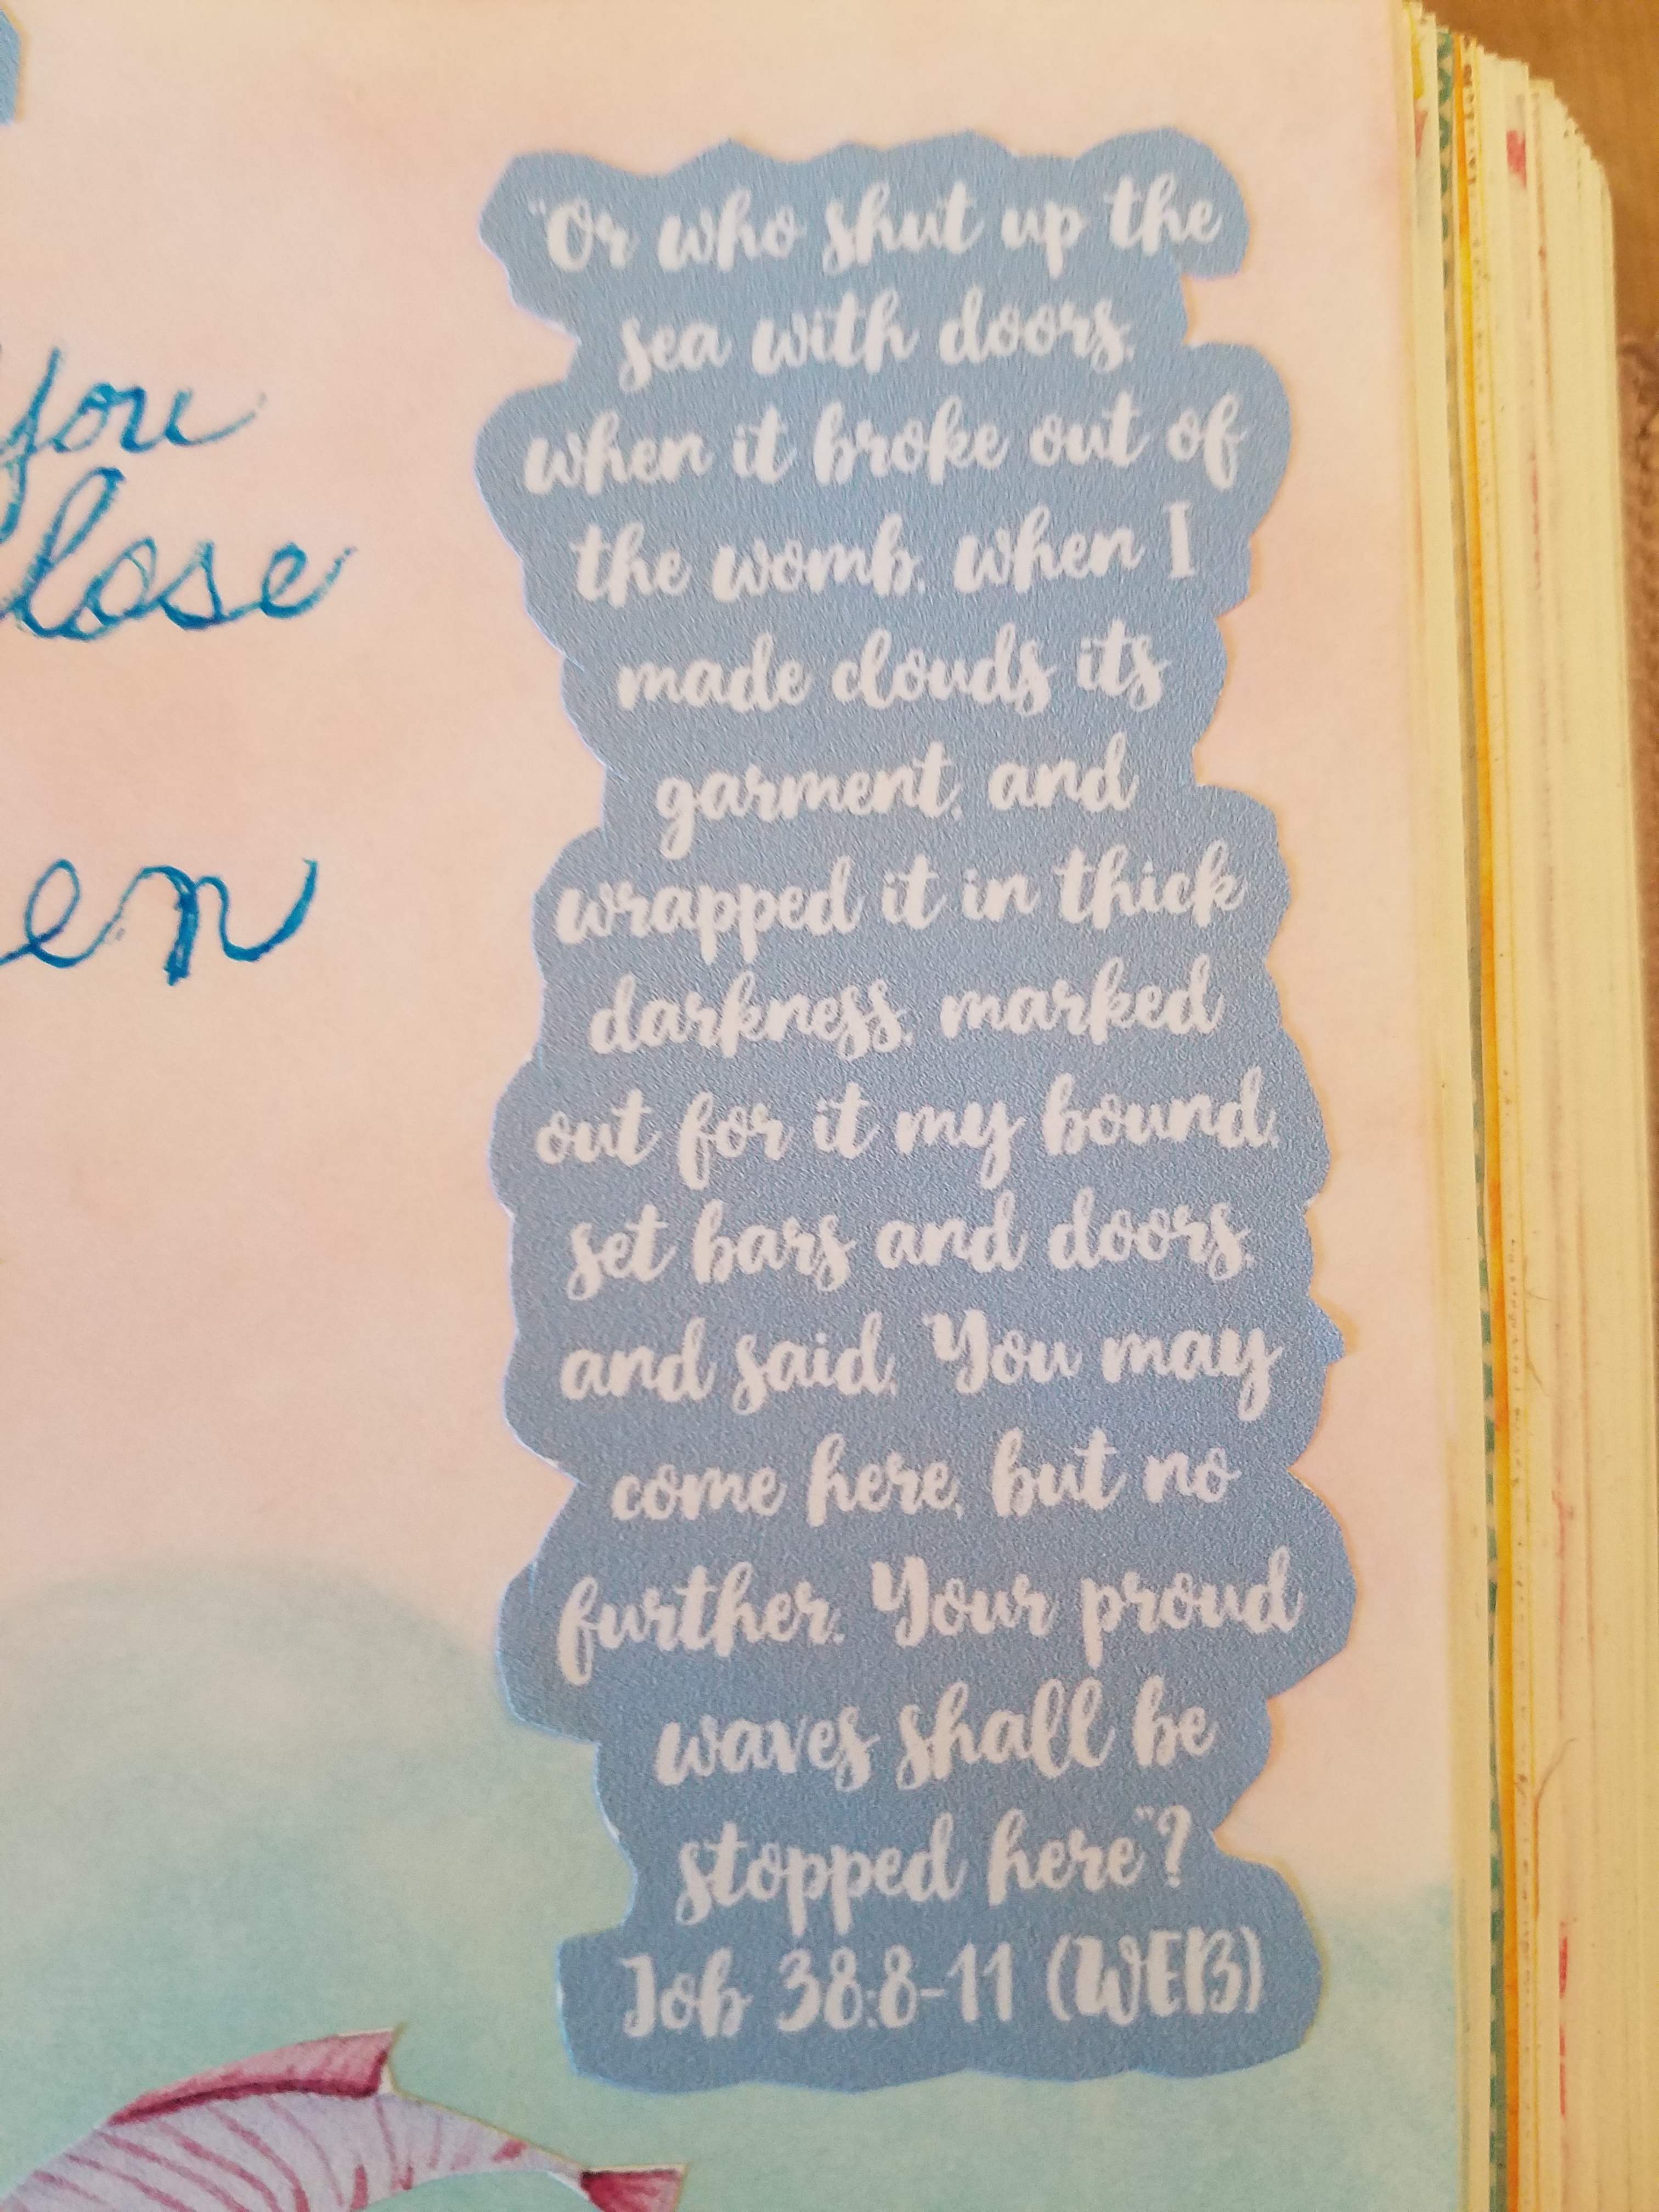 you
lose
en
"Or who shut up the
sea with doors,
when it broke out of
the womb, when I
made clouds its
garment, and
wrapped it in thick
darkness, marked
out for it my bound,
set bars and doors,
and said, "You may
come here, but no
further. Your proud
waves shall be
stopped here"?
Job 38:8-11 (WEB)